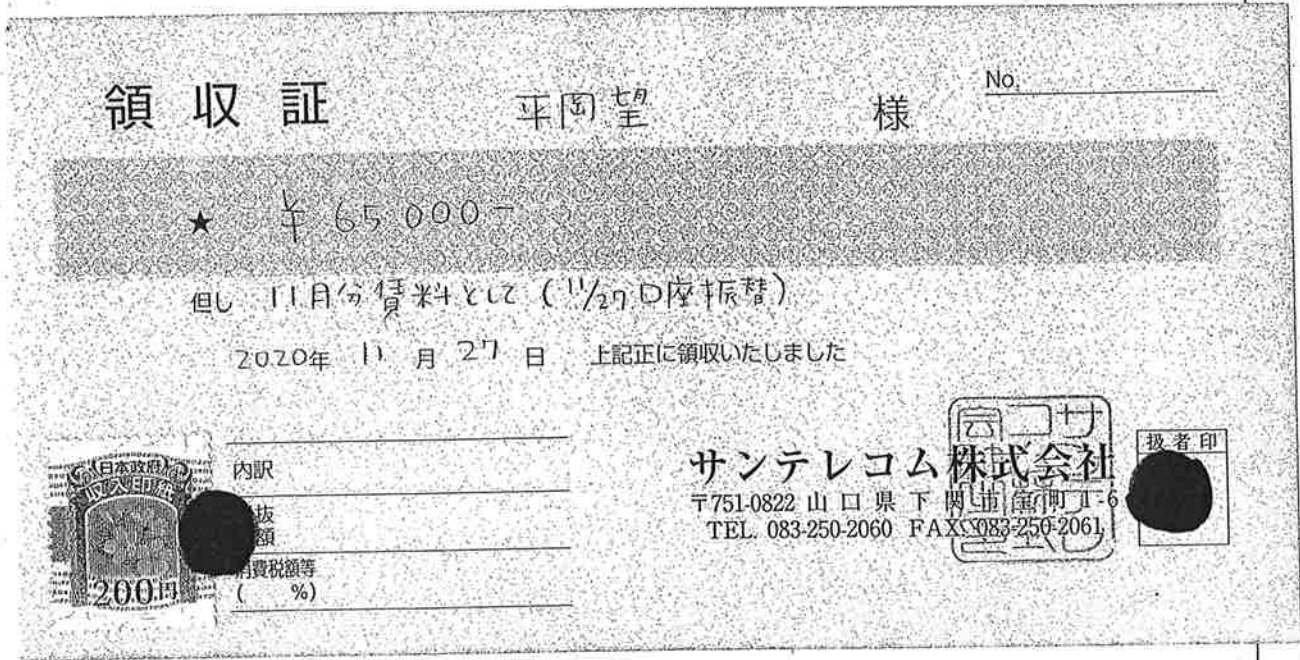 領収証 平岡望 様 No.
★ ¥65000-
但し 11月分賃料として(11/27口座振替)
2020年 11月27日 上記正に領収いたしました
日本政府
収入印紙
200円
内訳
税抜
金額
消費税額等
( %)
サンテレコム株式会社
〒751-0822 山口県下関市宝町1-6
TEL. 083-250-2060 FAX. 083-250-2061
扱者印